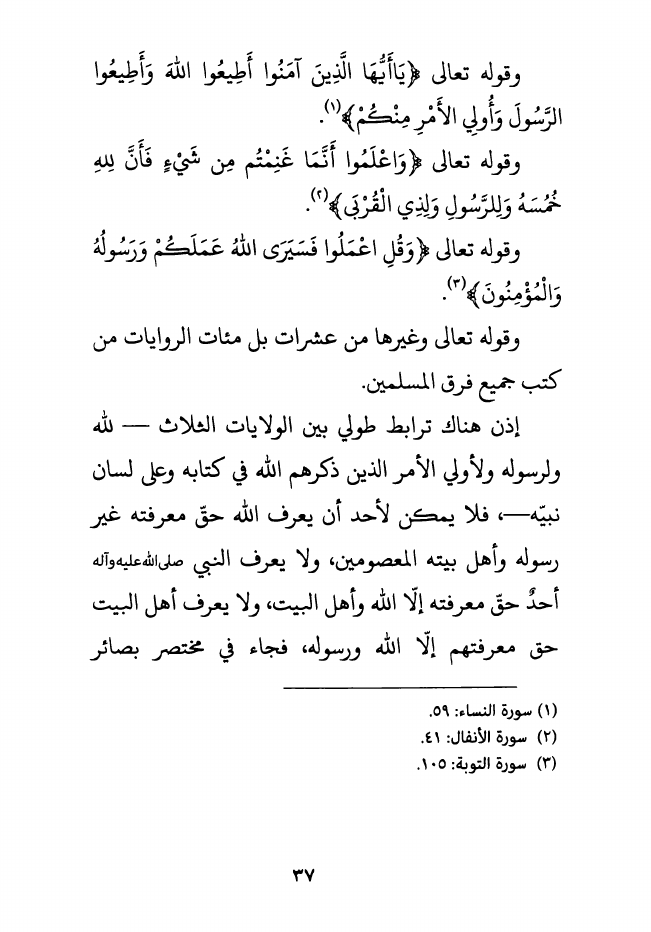 وقوله تعالى ﴿يَاأَيُّهَا الَّذِينَ آمَنُوا أَطِيعُوا اللهَ وَأَطِيعُوا
الرَّسُولَ وَأُولِي الأَمْرِ مِنْكُمْ﴾(١).
وقوله تعالى ﴿وَاعْلَمُوا أَنَّمَا غَنِمْتُم مِن شَيْءٍ فَأَنَّ لِلهِ
خُمُسَهُ وَلِلرَّسُولِ وَلِذِي الْقُرْبَى﴾(٢).
وقوله تعالى ﴿وَقُلِ اعْمَلُوا فَسَيَرَى اللهُ عَمَلَكُمْ وَرَسُولُهُ
وَالْمُؤْمِنُونَ﴾(٣).
وقوله تعالى وغيرها من عشرات بل مئات الروايات من
كتب جميع فرق المسلمين.
إذن هناك ترابط طولي بين الولايات الثلاث — لله
ولرسوله ولأولي الأمر الذين ذكرهم الله في كتابه وعلى لسان
نبيّه—، فلا يمكن لأحد أن يعرف الله حقّ معرفته غير
رسوله وأهل بيته المعصومين، ولا يعرف النبي صلى الله عليه وآله
أحدٌ حقّ معرفته إلّا الله وأهل البيت، ولا يعرف أهل البيت
حق معرفتهم إلّا الله ورسوله، فجاء في مختصر بصائر
(١) سورة النساء: ٥٩.
(٢) سورة الأنفال: ٤١.
(٣) سورة التوبة: ١٠٥.
٣٧